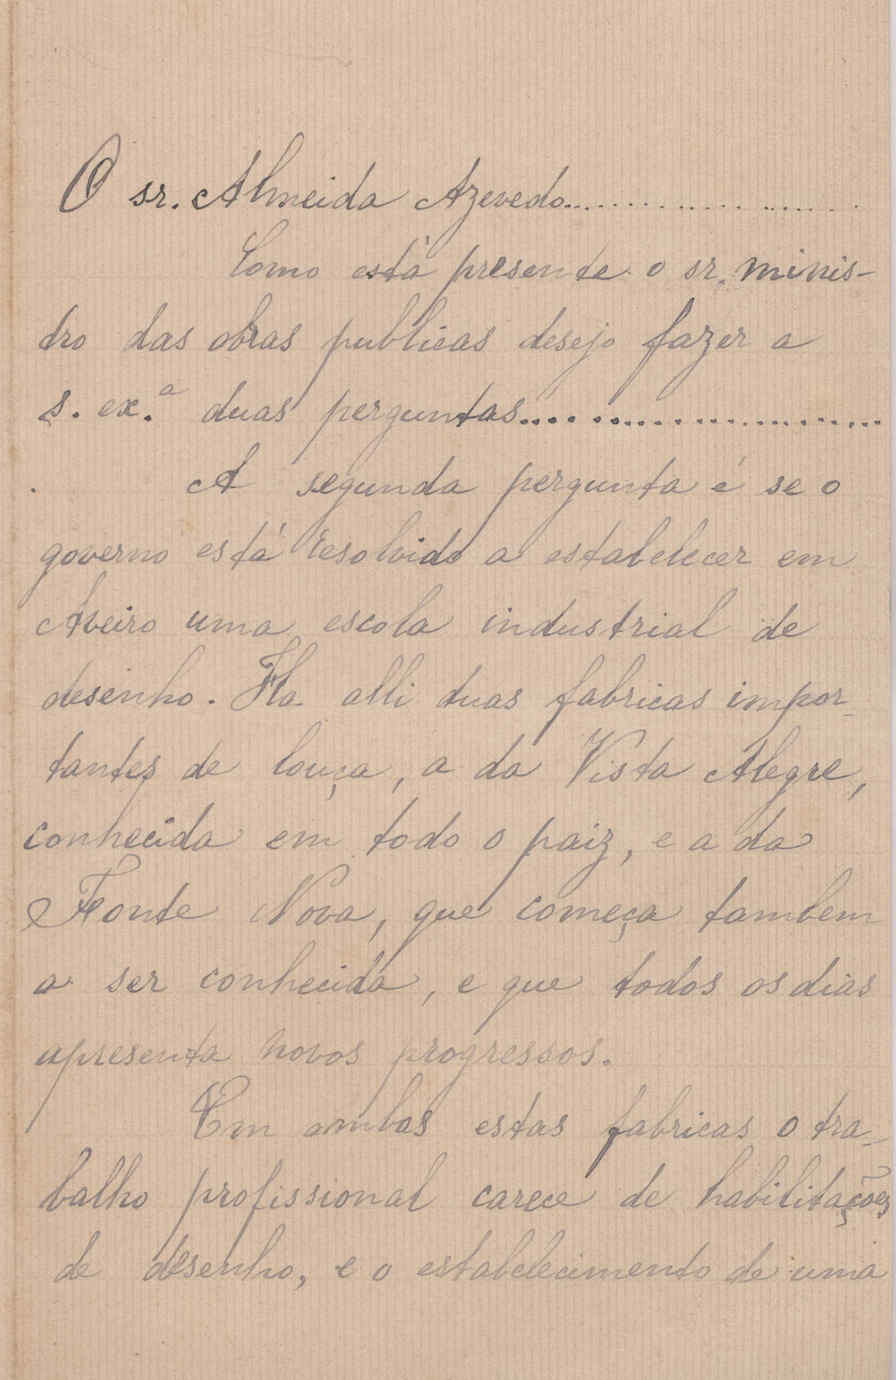 O sr. Almeida Azevedo......................
Como está presente o sr. minis-
tro das obras publicas desejo fazer a
s. ex.ª duas perguntas............................
A segunda pergunta é se o
governo está resolvido a estabelecer em
Aveiro uma escola industrial de
desenho. Ha alli duas fabricas impor-
tantes de louça, a da Vista Alegre,
conhecida em todo o paiz, e a da
Fonte Nova, que começa tambem
a ser conhecida, e que todos os dias
apresenta novos progressos.
Em ambas estas fabricas o tra-
balho profissional carece de habilitações
de desenho, e o estabelecimento de uma